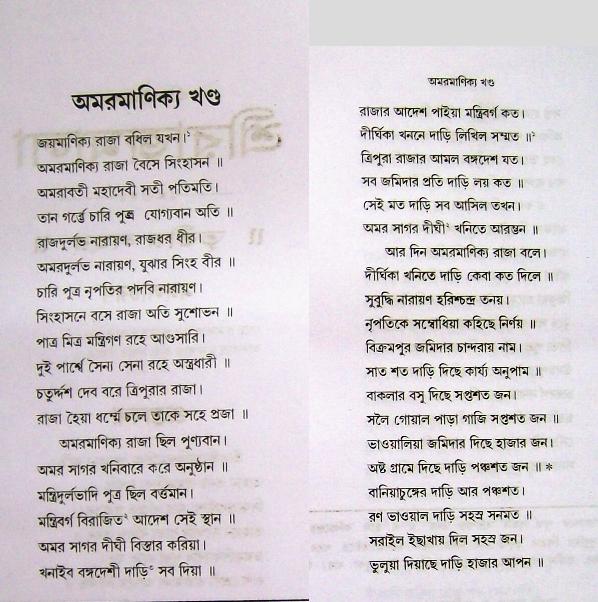 অমরমাণিক্য খণ্ড
জয়মাণিক্য রাজা বধিল যখন।১
অমরমাণিক্য রাজা বৈসে সিংহাসন ॥
অমরাবতী মহাদেবী সতী পতিমতি।
তান গর্ত্তে চারি পুত্র যোগ্যবান অতি ॥
রাজদুর্লভ নারায়ণ, রাজধর ধীর।
অমরদুর্লভ নারায়ণ, যুঝার সিংহ বীর ॥
চারি পুত্র নৃপতির পদবি নারায়ণ।
সিংহাসনে বসে রাজা অতি সুশোভন ॥
পাত্র মিত্র মন্ত্রিগণ রহে আগুসারি।
দুই পার্শ্বে সৈন্য সেনা রহে অস্ত্রধারী ॥
চতুর্দ্দশ দেব বরে ত্রিপুরার রাজা।
রাজা হৈয়া ধর্ম্মে চলে তাকে সহে প্রজা ॥
অমরমাণিক্য রাজা ছিল পুণ্যবান।
অমর সাগর খনিবারে করে অনুষ্ঠান ॥
মন্ত্রিদুর্লভাদি পুত্র ছিল বর্ত্তমান।
মন্ত্রিবর্গ বিরাজিত২ আদেশ সেই স্থান ॥
অমর সাগর দীঘী বিস্তার করিয়া।
খনাইব বঙ্গদেশী দাড়ি৩ সব দিয়া ॥
অমরমাণিক্য খণ্ড
রাজার আদেশ পাইয়া মন্ত্রিবর্গ কত।
দীর্ঘিকা খননে দাড়ি লিখিল সম্মত ॥১
ত্রিপুরা রাজার আমল বঙ্গদেশ যত।
সব জমিদার প্রতি দাড়ি লয় কত ॥
সেই মত দাড়ি সব আসিল তখন।
অমর সাগর দীঘী২ খনিতে আরম্ভন ॥
আর দিন অমরমাণিক্য রাজা বলে।
দীর্ঘিকা খনিতে দাড়ি কেবা কত দিলে ॥
সুবুদ্ধি নারায়ণ হরিশ্চন্দ্র তনয়।
নৃপতিকে সম্বোধিয়া কহিছে নির্ণয় ॥
বিক্রমপুর জমিদার চান্দরায় নাম।
সাত শত দাড়ি দিছে কার্য্য অনুপাম ॥
বাকলার বসু দিছে সপ্তশত জন।
সলৈ গোয়াল পাড়া গাজি সপ্তশত জন ॥
ভাওয়ালিয়া জমিদার দিছে হাজার জন।
অষ্ট গ্রামে দিছে দাড়ি পঞ্চশত জন ॥*
বানিয়াচুঙ্গের দাড়ি আর পঞ্চশত।
রণ ভাওয়াল দাড়ি সহস্র সনমত ॥
সরাইল ইছাখায় দিল সহস্র জন।
ভুলুয়া দিয়াছে দাড়ি হাজার আপন ॥